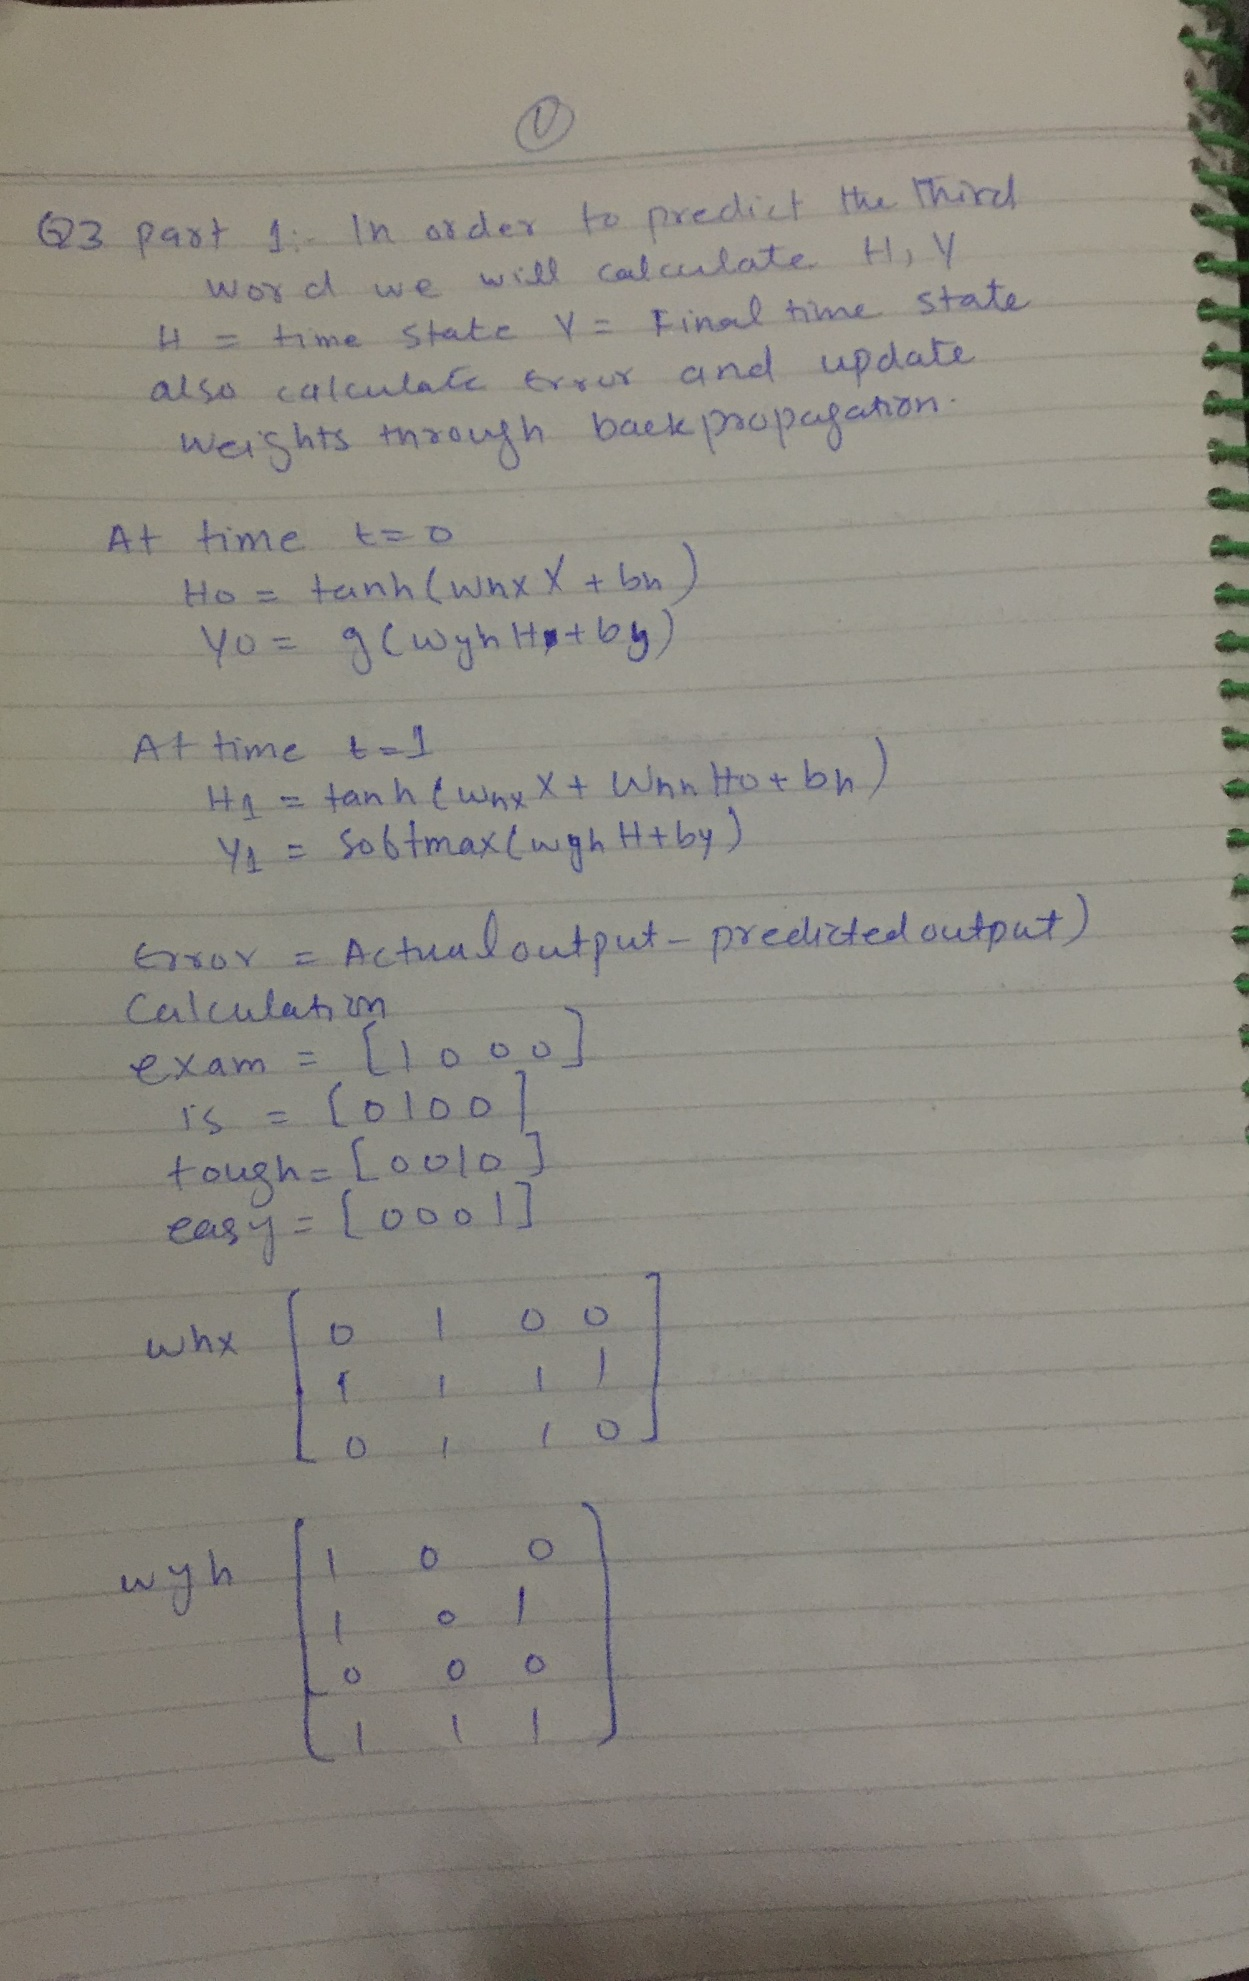 Q3 part 1:- In order to predict the third
word we will calculate H, Y
H = time state Y = Final time state
also calculate Error and update
weights through backpropagation.
At time t=0
H0 = tanh(whx X + bh)
Y0 = g(wyh H + by)
At time t=1
H1 = tanh(whx X + Whh H0 + bh)
Y1 = Softmax(wyh H + by)
Error = Actual output - predicted output)
Calculation
exam = [1 0 0 0]
is = [0 1 0 0]
tough = [0 0 1 0]
easy = [0 0 0 1]
whx [ 0 1 0 0
1 1 1 1
0 1 1 0 ]
wyh [ 1 0 0
1 0 1
0 0 0
1 1 1 ]